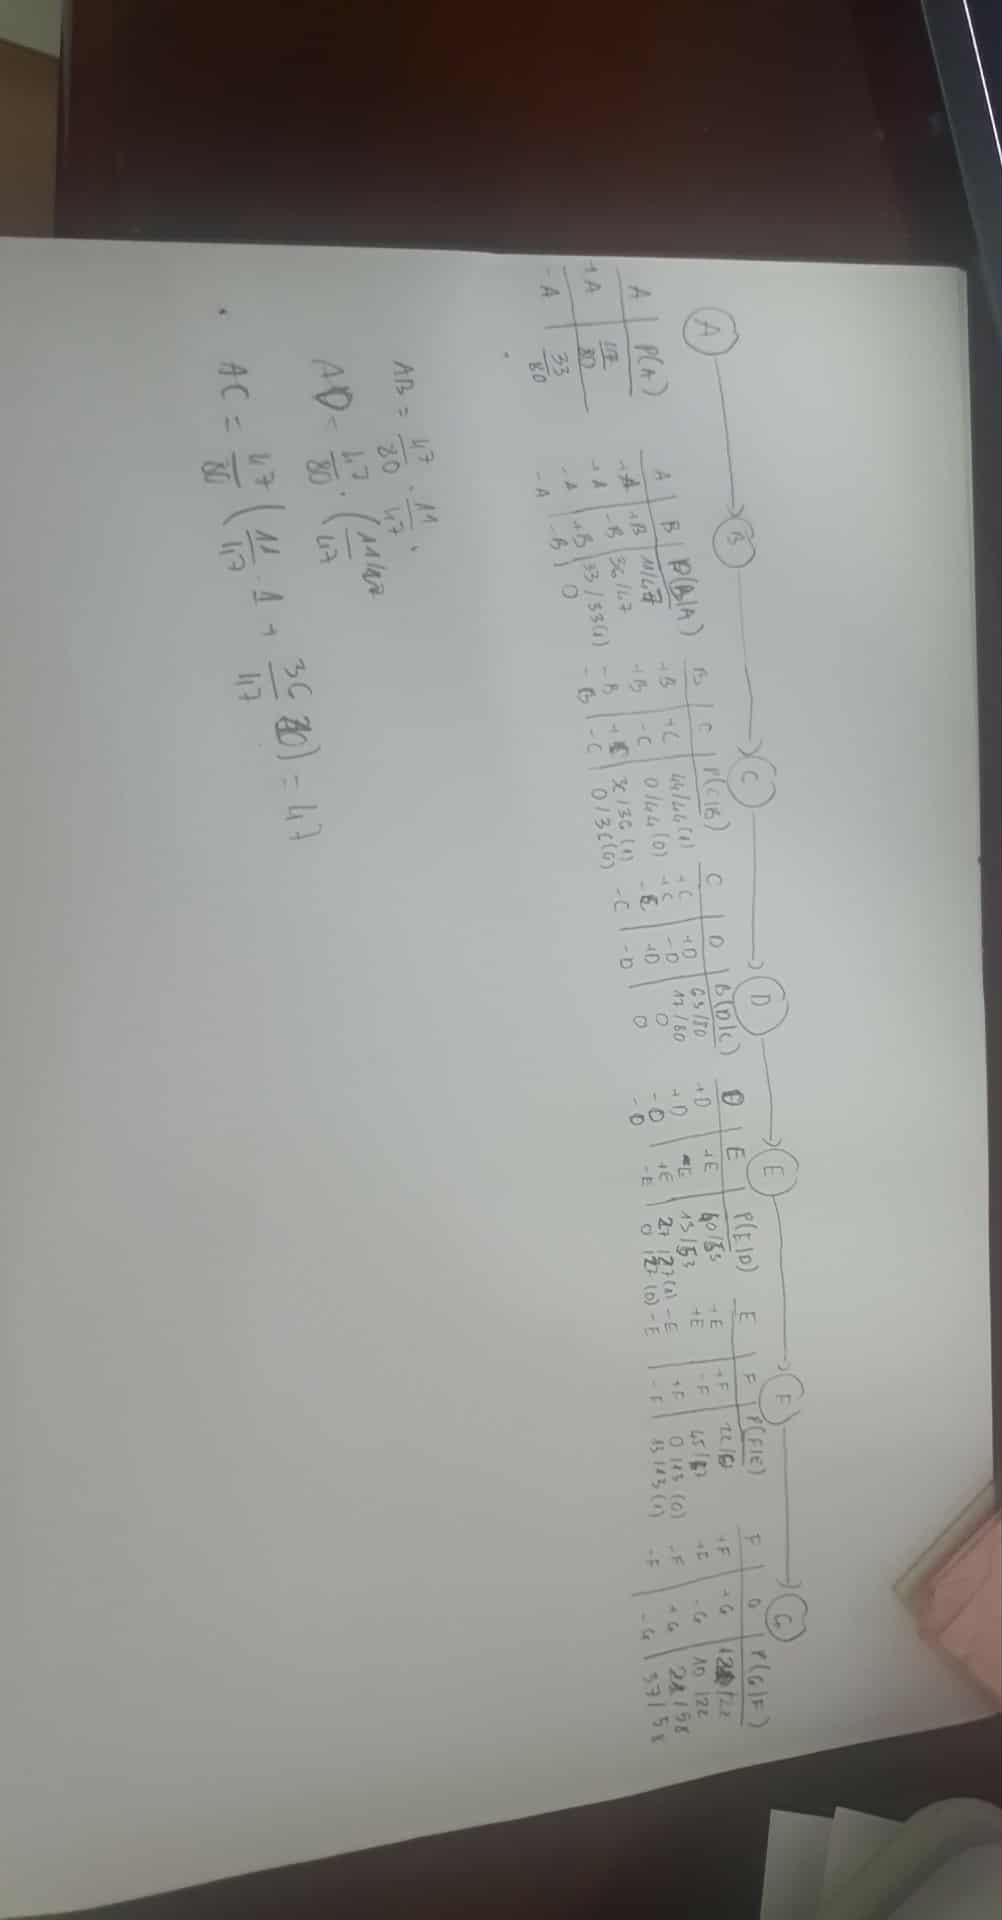 A B C D E F G
A | P(A)
+A | 47/80
-A | 33/80
A | B | P(B|A)
+A | +B | 11/47
+A | -B | 36/47
-A | +B | 33/33(1)
-A | -B | 0
B | C | P(C|B)
+B | +C | 44/44(1)
+B | -C | 0/44(0)
-B | +C | 36/36(1)
-B | -C | 0/36(0)
C | D | P(D|C)
+C | +D | 63/80
+C | -D | 17/80
-C | +D | 0
-C | -D | 0
D | E | P(E|D)
+D | +E | 40/53
+D | -E | 13/53
-D | +E | 27/27(1)
-D | -E | 0/27(0)
E | F | P(F|E)
+E | +F | 22/67
+E | -F | 45/67
-E | +F | 0/13(0)
-E | -F | 13/13(1)
F | G | P(G|F)
+F | +G | 12/22
+F | -G | 10/22
-F | +G | 21/58
-F | -G | 37/58
AB = 47/80 · 11/47 ·
AD = 47/80 · (11/47
AC = 47/80 (11/47 · 1 + 36/47 ) = 47